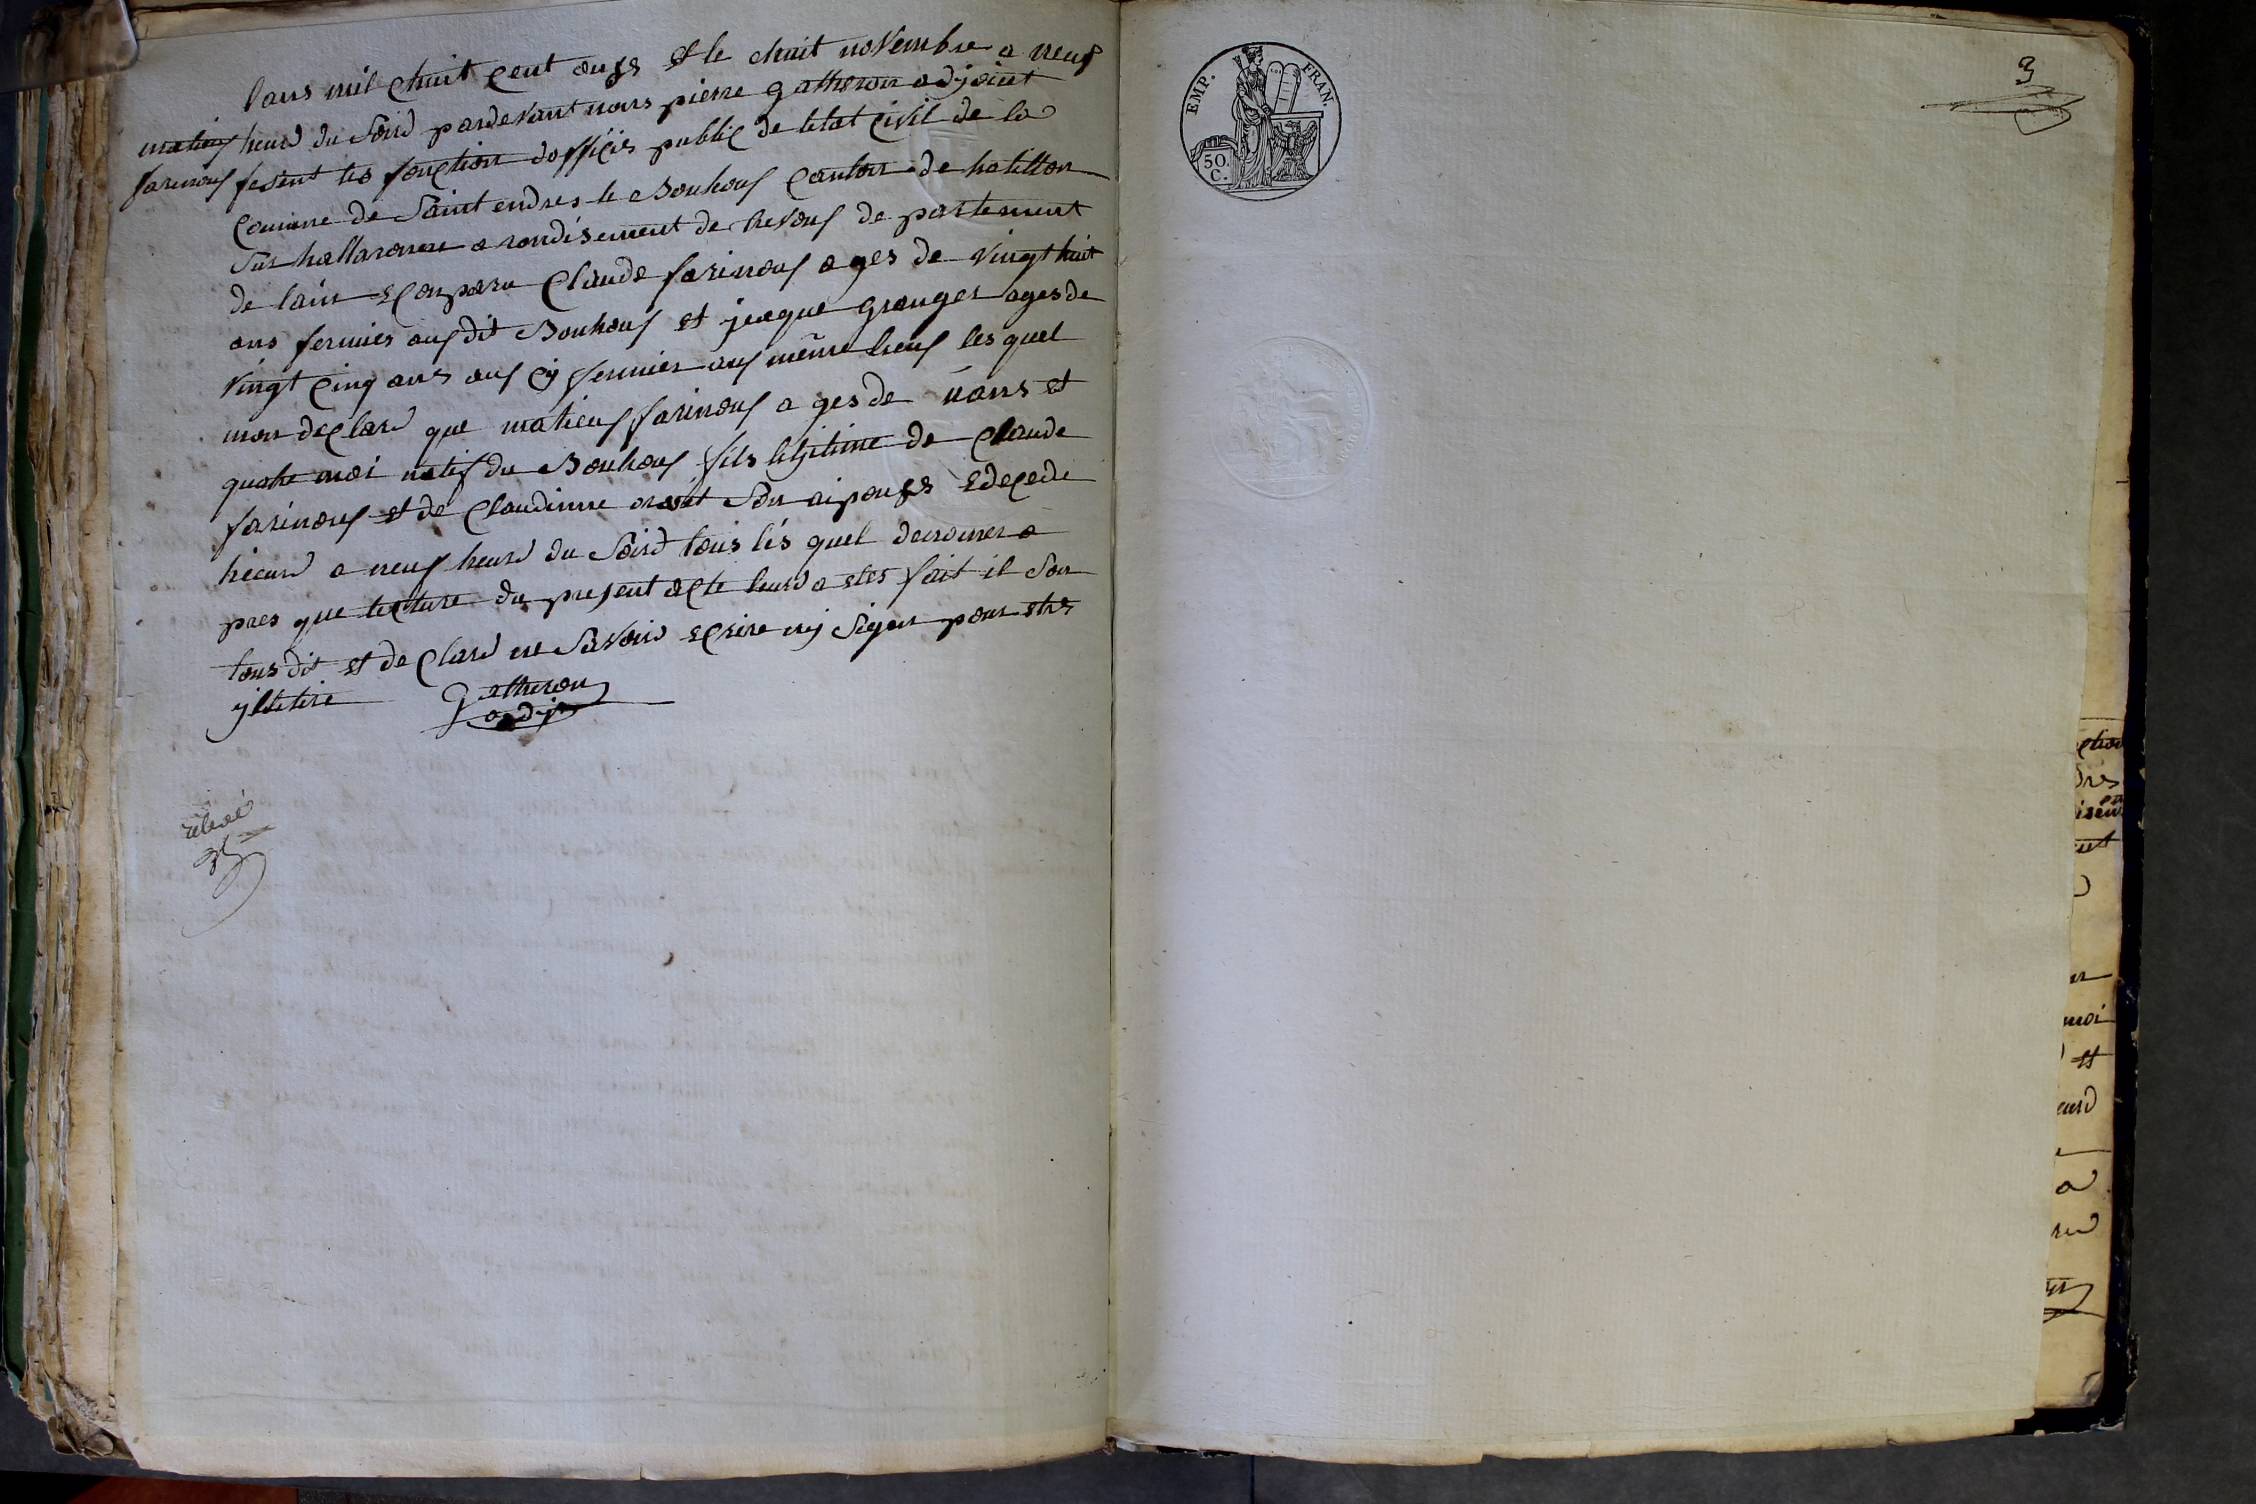 Lans mil chuit cent onse et le chuit novembre a neuf
matieuf heurd du soird pardevant nous pierre gatheron adjoint
farinouf fesent les fonction dofficies public de letat civil de la
comune de saint endres le Bouhouf canton de hatillon
sur hallaronne arondisement de trevouf de partement
de lain e conparu claude farinouf ages de vingt huit
ans fermies ouf dit Bouhouf et jeaque granger ages de
vingt cinq ans ouf cy fermier ouf même lieuf les quel
mon declard que matieuf farinouf ages de ii ans et
quatre moi natif du Bouhouf fils legitime de claude
farinouf et de claudinne son aipouse e decede
hieurd a neuf heurd du soird tous les quel
pres que lecture du present acte leurd a etes fait il son
tous dit et declard ne savoird ecrire ny signer pour etre
Gatheron
adj
EMP. FRAN.
50.
C.
3
moi
et
eurd
a